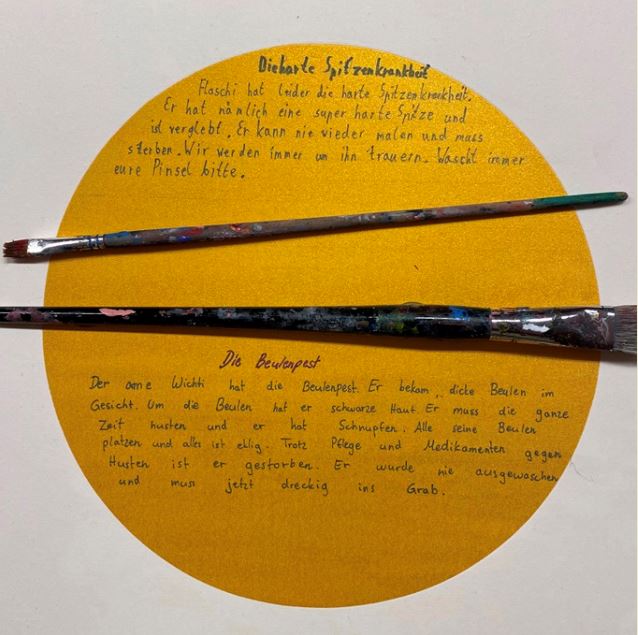 Die harte Spitzenkrankheit
Flaschi hat leider die harte Spitzenkrankheit.
Er hat nämlich eine super harte Spitze und
ist verglebt. Er kann nie wieder malen und mass
sterben. Wir werden immer um ihn trauern. Wascht immer
eure Pinsel bitte.
Die Beulenpest
Der arme Wichti hat die Beulenpest. Er bekam dicke Beulen im
Gesicht. Um die Beulen hat er schwarze Haut. Er muss die ganze
Zeit husten und er hat Schnupfen. Alle seine Beulen
platzen und alles ist eklig. Trotz Pflege und Medikamenten gegen
Husten ist er gestorben. Er wurde nie ausgewaschen
und muss jetzt dreckig ins Grab.